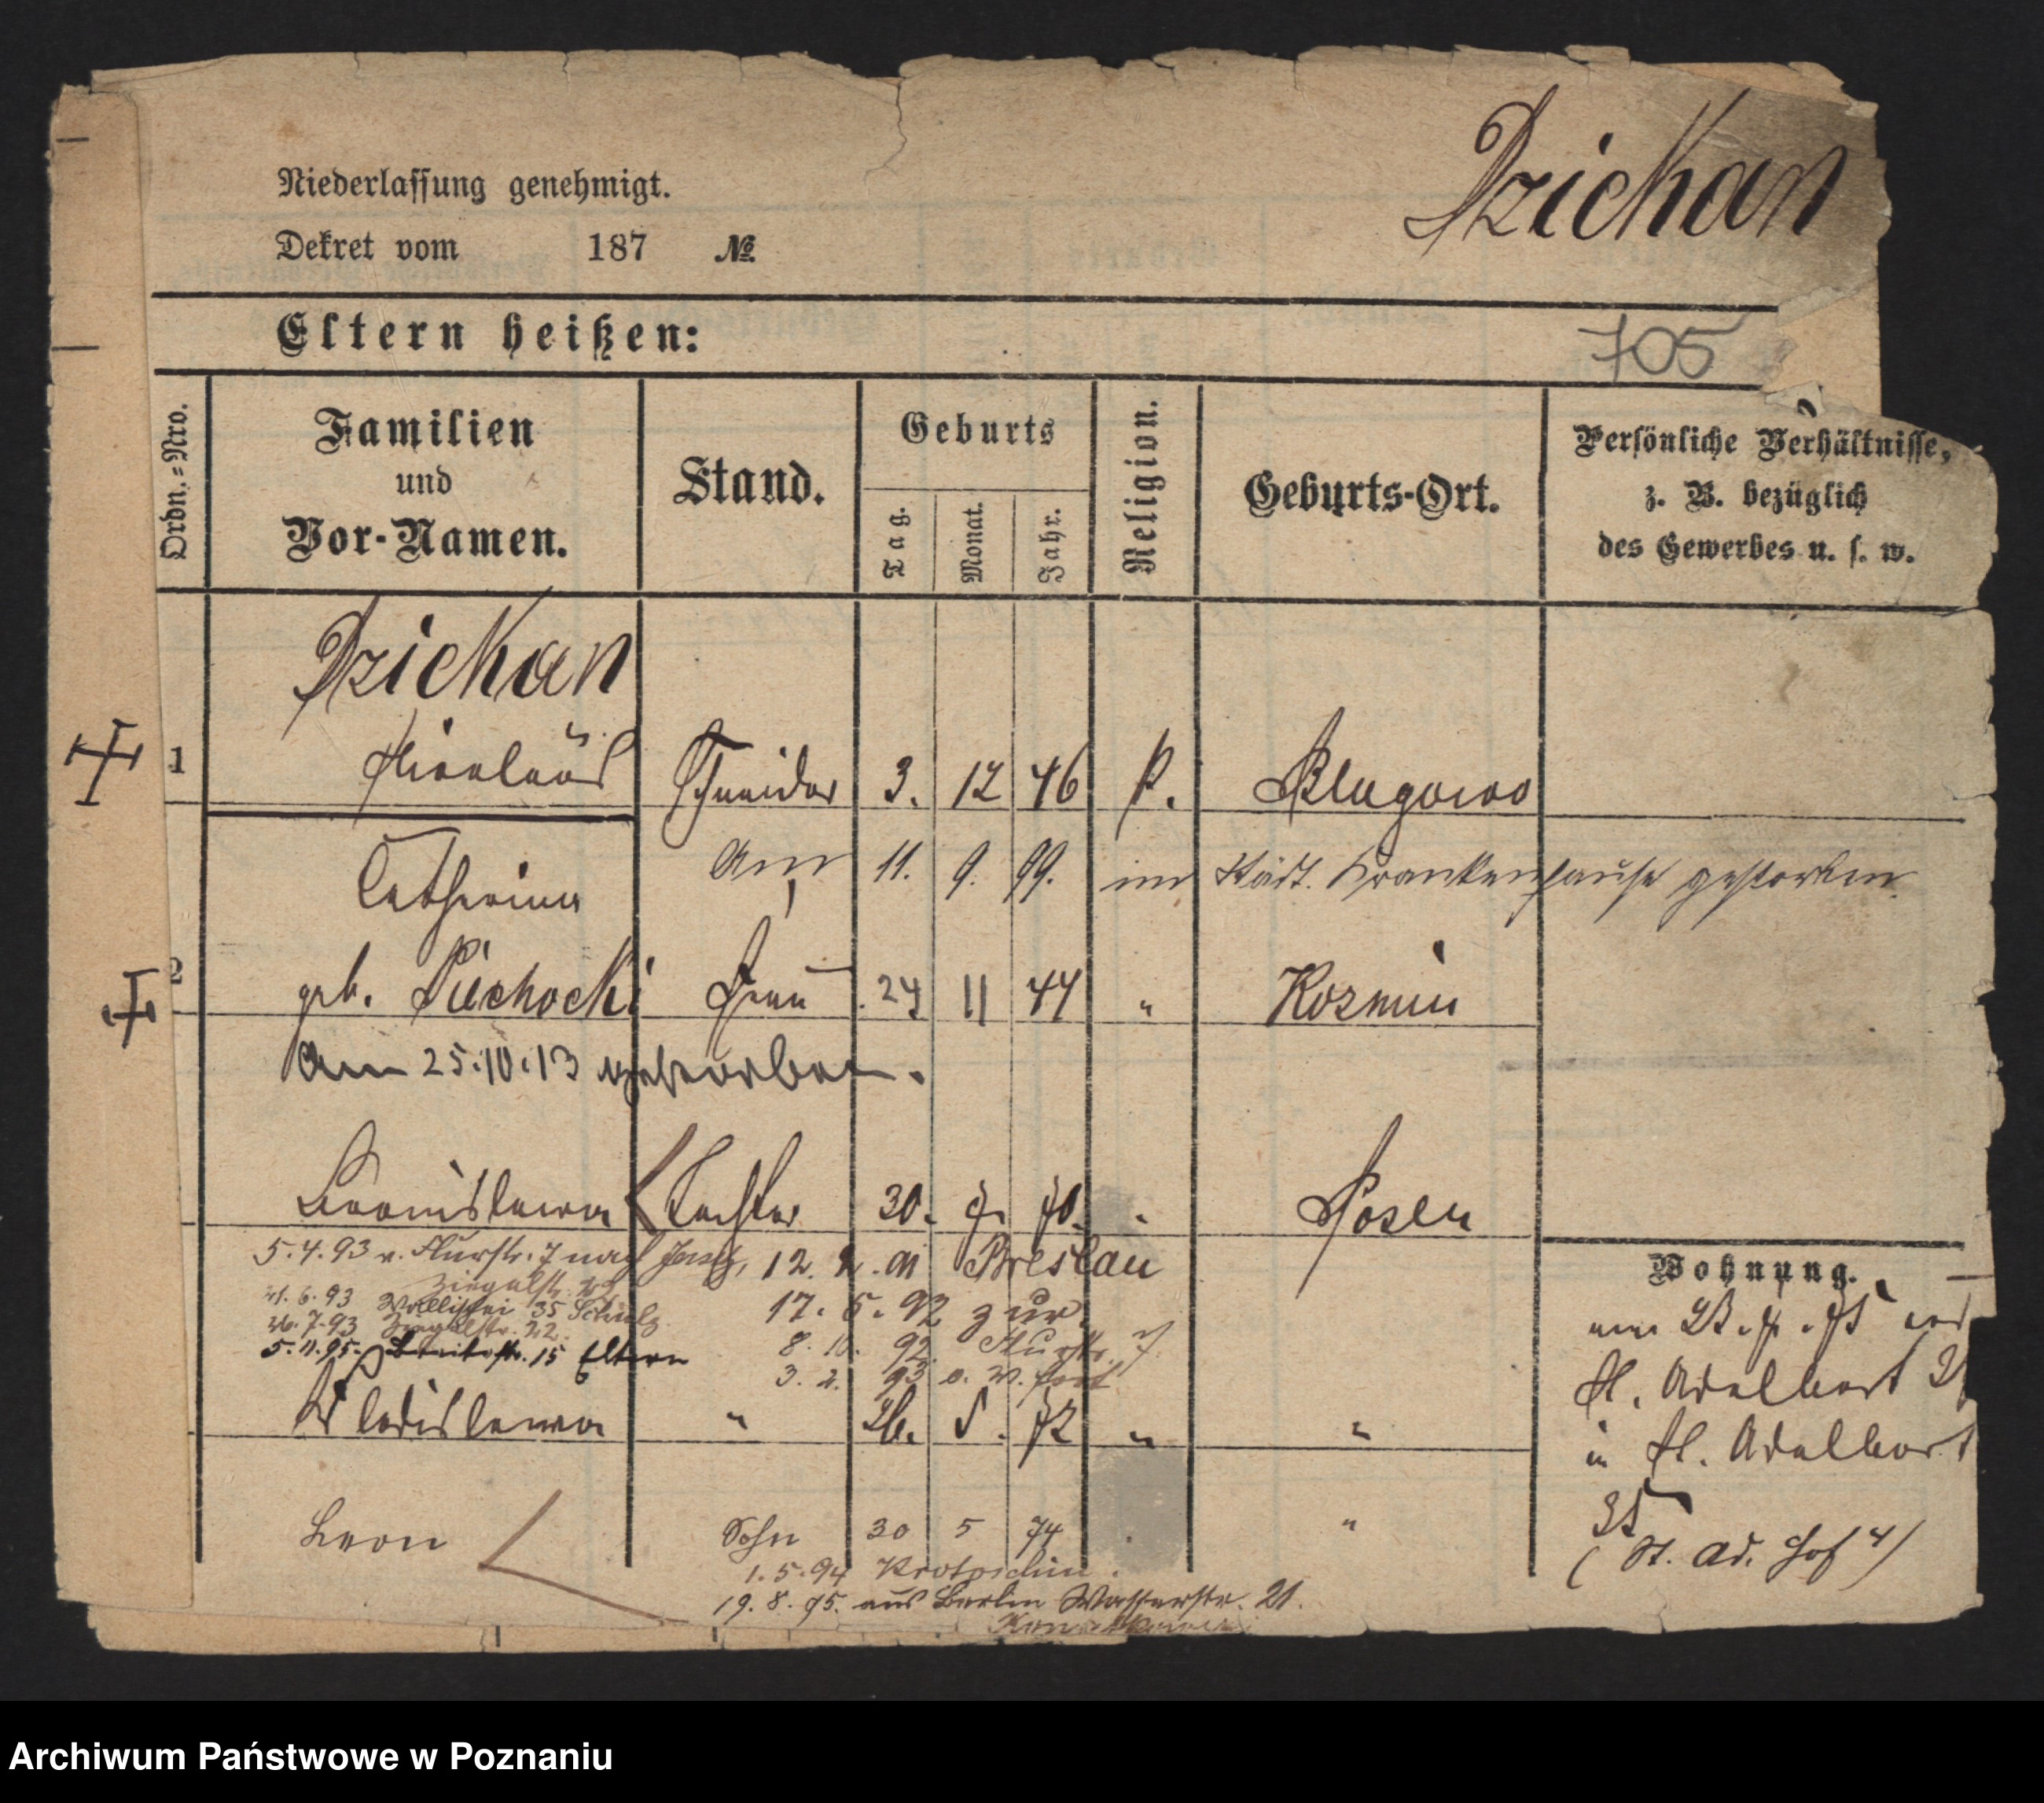 Niederlassung genehmigt.
Dzickan
Dekret vom 187 №
Eltern heißen:
705
Ordn.=Nro.
Familien
und
Vor-Namen.
Stand.
Geburts
Tag.
Monat.
Jahr.
Religion.
Geburts-Ort.
Persönliche Verhältnisse,
z. B. bezüglich
des Gewerbes u. s. w.
Dzickan
1 Nicolaus Schneider 3. 12 46 k. Blugowo
Am 11. 9. 99. im Städt. Krankenhause gestorben
Catharina
2 geb. Suchocki Frau 24 11 44 " Kozmin
Am 25.10.13 gestorben.
Bronislawa Tochter 30. 7. 70. " Posen
5.4.93 v. Flurstr. 7 nach
12. 91 Breslau
Ziegelstr.
21.6.93 Wallischei 35 Schulz
17. 5. 92 zur.
26.7.93 Ziegelstr. 22.
8. 10. 92. Flurstr. 7.
5.11.95. 15 Eltern
3. 2. 93 fort
Wladislawa " 26. 5. 72 " "
Leon Sohn 30 5 74 . "
1.5.94 Krotoschin.
19.8.95. aus Berlin Wasserstr. 21.
Wohnung.
St. Adalbert
in St. Adalbert
35
(St. Ad. Hof 4)
Archiwum Państwowe w Poznaniu